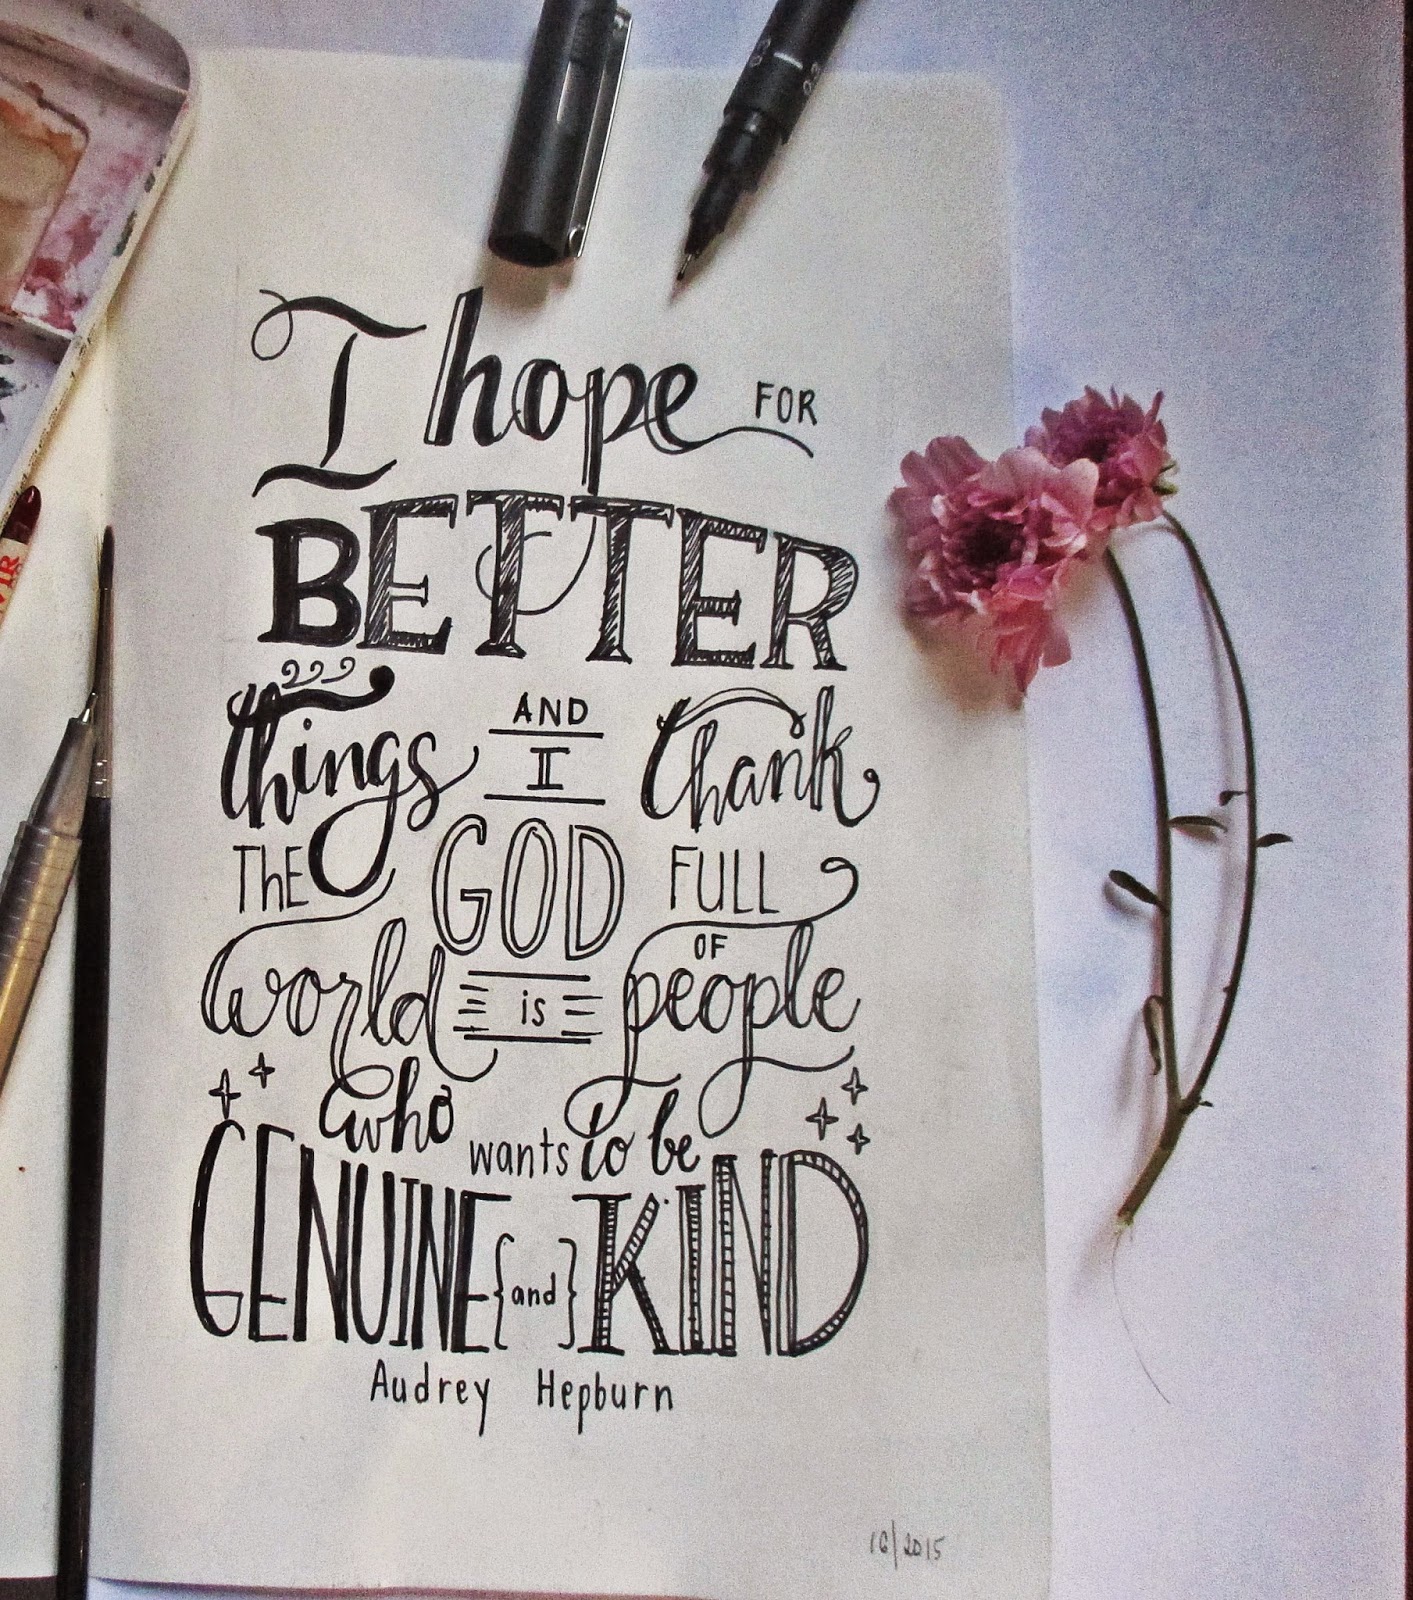 I hope FOR
BETTER
things AND I thank
THE GOD FULL
world is OF people
who wants to be
GENUINE {and} KIND
Audrey Hepburn
16/2015